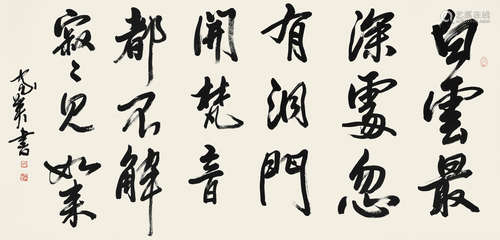 白雲最
深處忽
有洞門
開梵音
都不解
寂々見如来
書